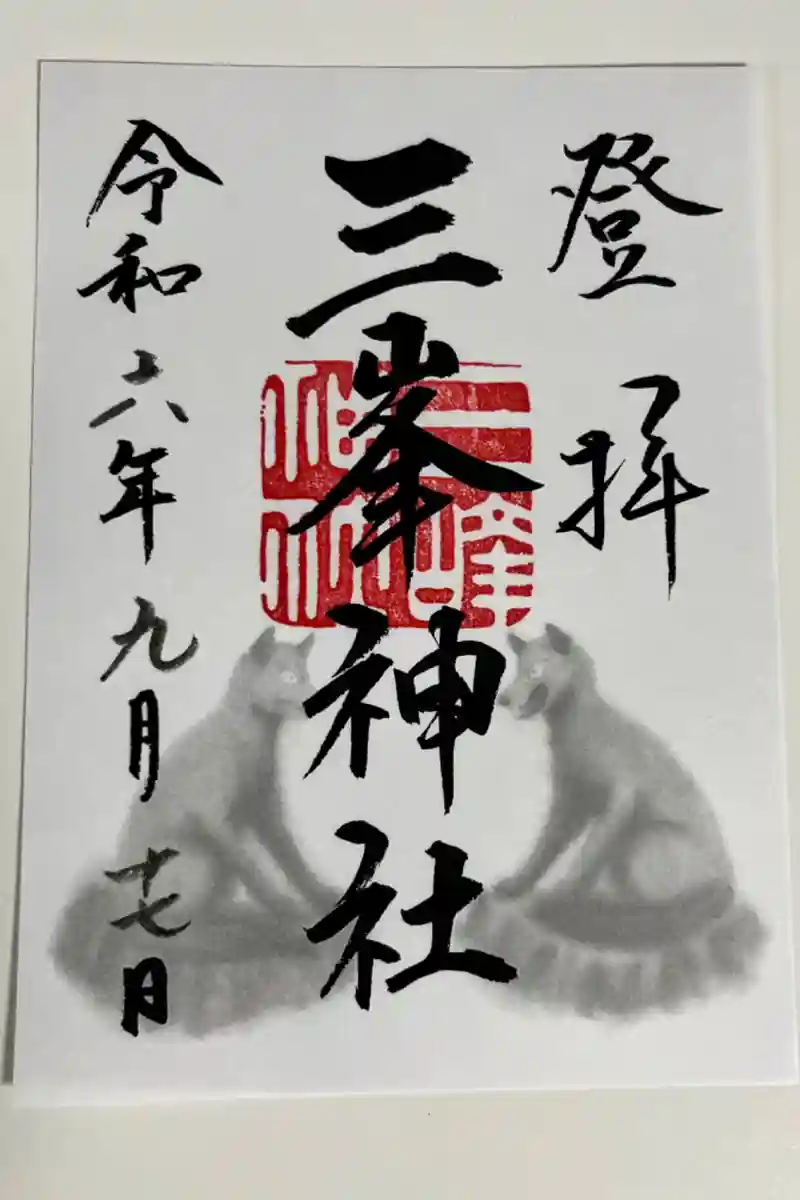 登拝
三峯神社
令和六年九月十七日